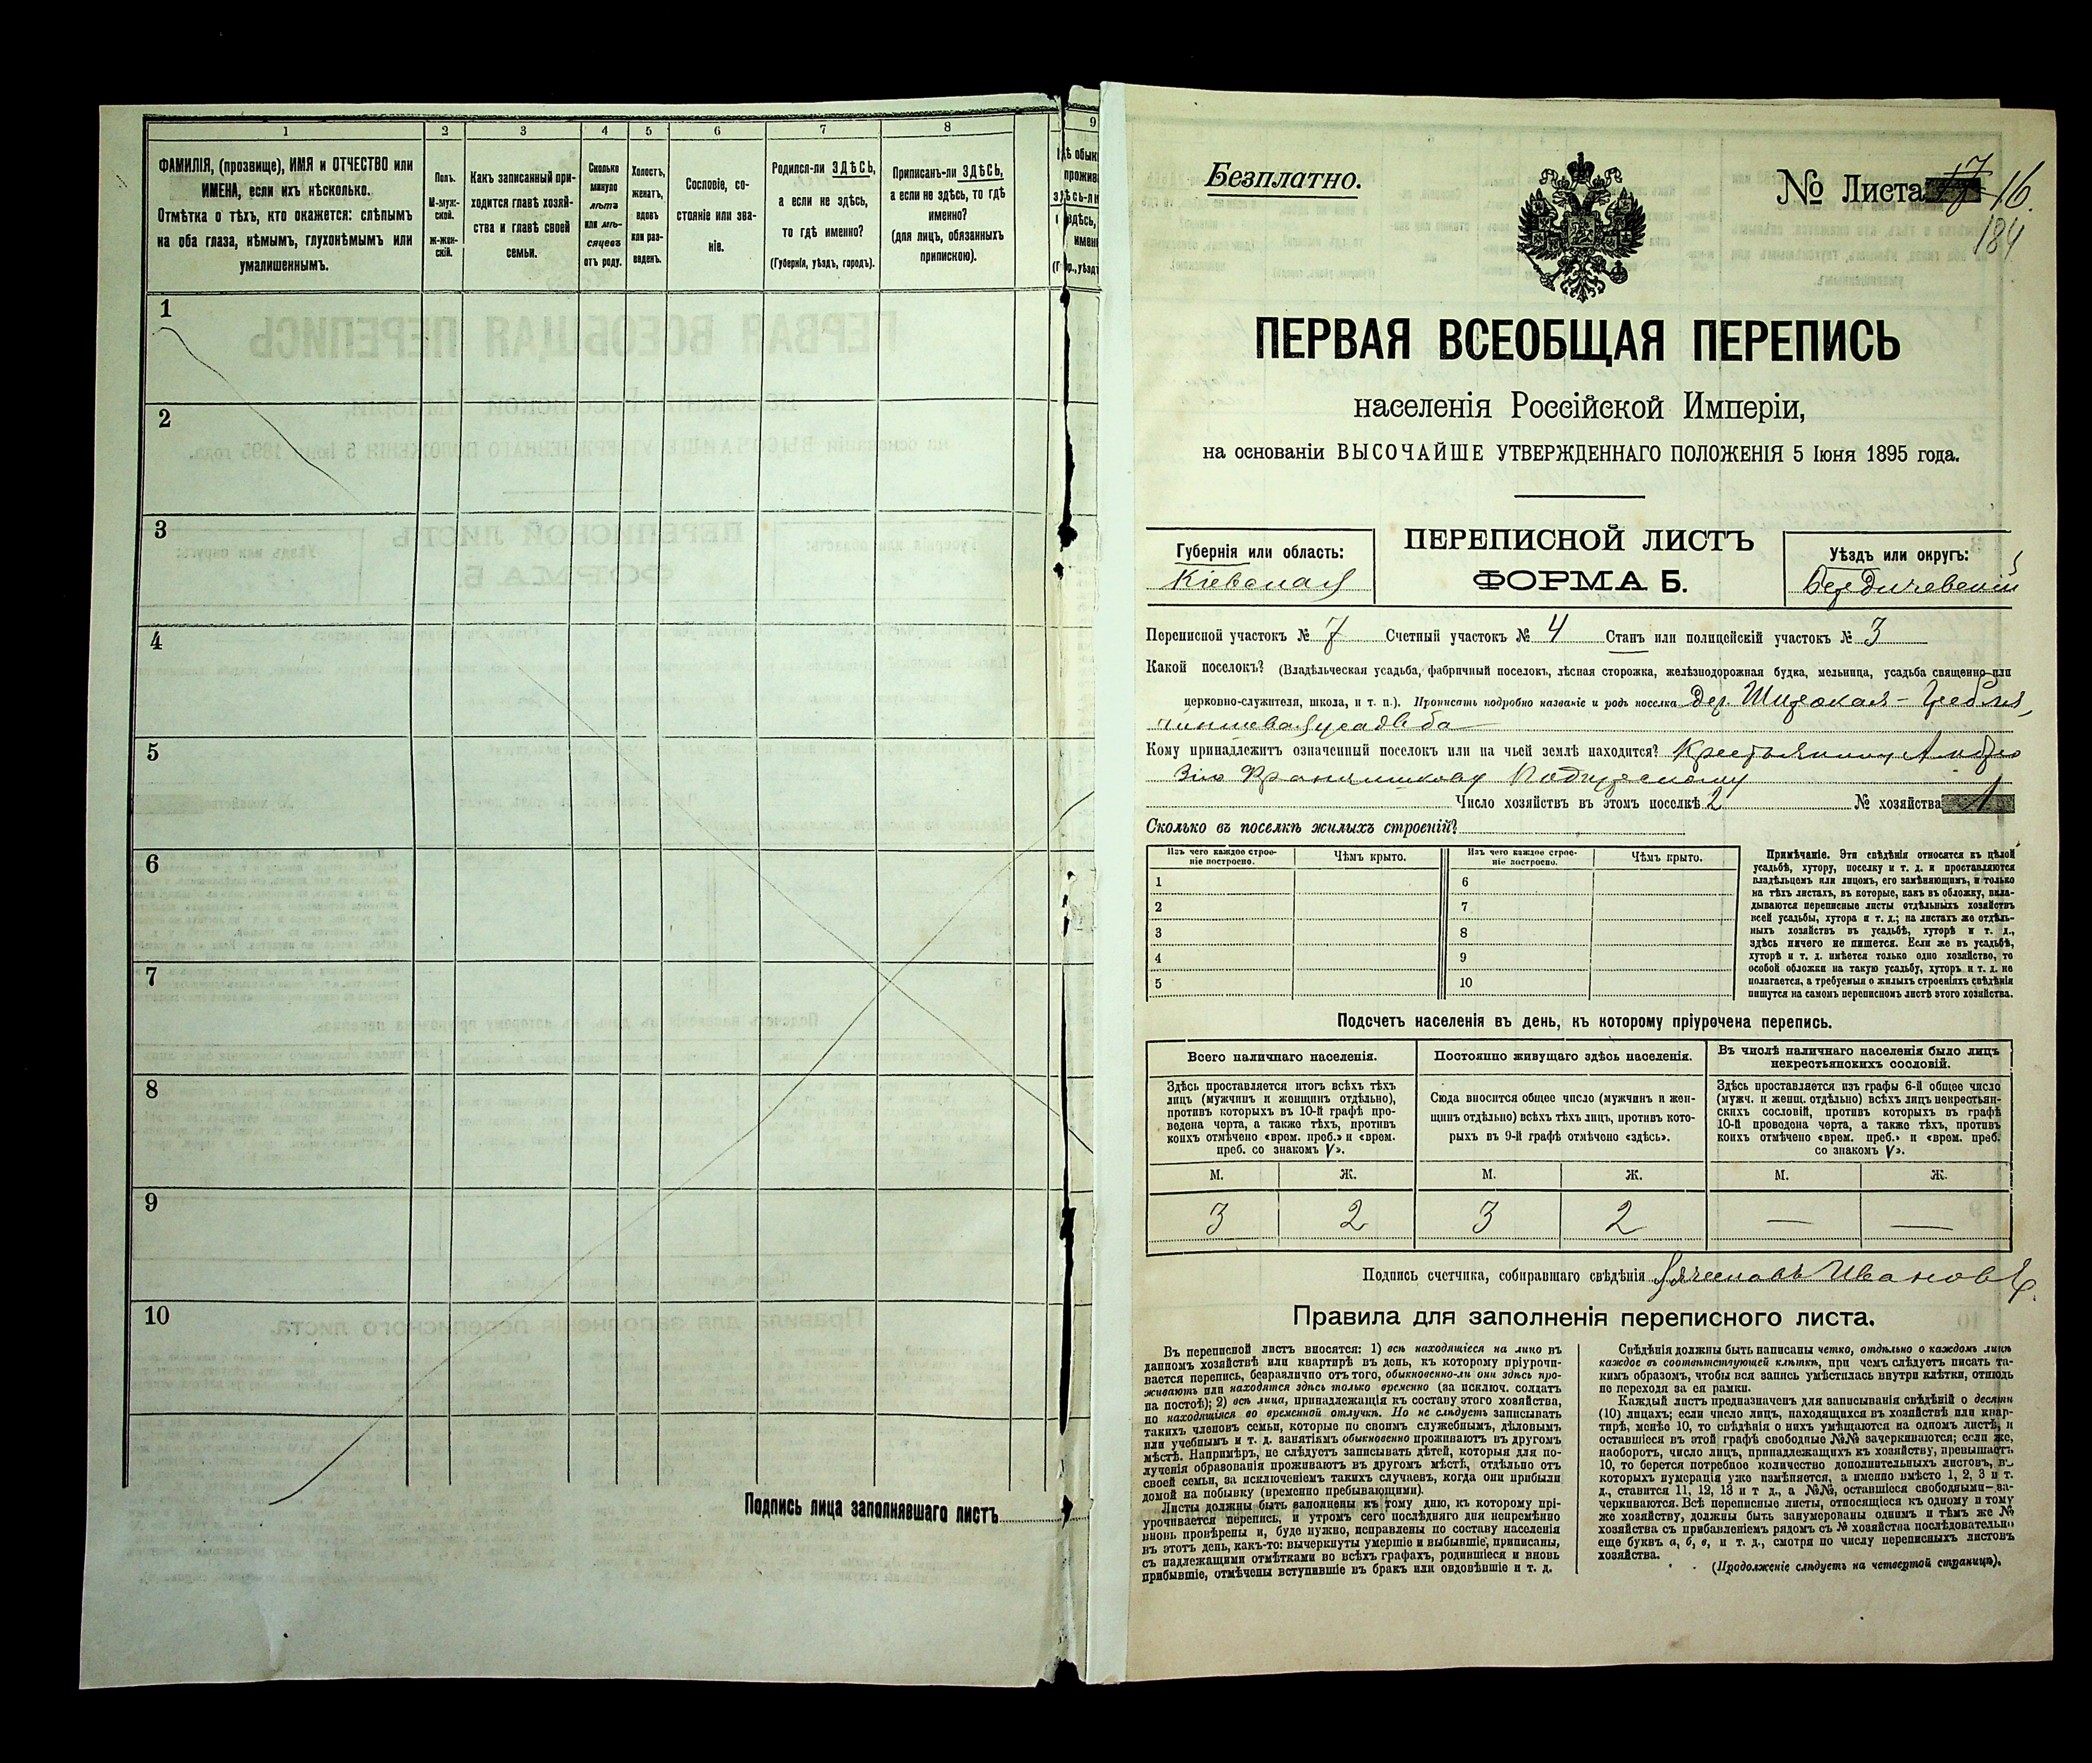 1 2 3 4 5 6 7 8
ФАМИЛІЯ, (прозвище), ИМЯ и ОТЧЕСТВО или
ИМЕНА, если ихъ нѣсколько.
Отмѣтка о тѣхъ, кто окажется: слѣпымъ
на оба глаза, нѣмымъ, глухонѣмымъ или
умалишеннымъ.
Полъ.
М-муж-
ской.
Ж-жен-
скій.
Какъ записанный при-
ходится главѣ хозяй-
ства и главѣ своей
семьи.
Сколько
минуло
лѣтъ
или мѣ-
сяцевъ
отъ роду.
Холостъ,
женатъ,
вдовъ
или раз-
веденъ.
Сословіе, со-
стояніе или зва-
ніе.
Родился-ли ЗДѢСЬ,
а если не здѣсь,
то гдѣ именно?
(Губернія, уѣздъ, городъ).
Приписанъ-ли ЗДѢСЬ,
а если не здѣсь, то гдѣ
именно?
(для лицъ, обязанныхъ
припискою).
9
1
2
3
4
5
6
7
8
9
10
Подпись лица заполнявшаго листъ
Безплатно.
№ Листа 16.
184
ПЕРВАЯ ВСЕОБЩАЯ ПЕРЕПИСЬ
населенія Россійской Имперіи,
на основаніи ВЫСОЧАЙШЕ УТВЕРЖДЕННАГО ПОЛОЖЕНІЯ 5 Іюня 1895 года.
Губернія или область:
Кіевская
ПЕРЕПИСНОЙ ЛИСТЪ
ФОРМА Б.
Уѣздъ или округъ:
Бердичевскій
Переписной участокъ № 7 Счетный участокъ № 4 Станъ или полицейскій участокъ № 3
Какой поселокъ? (Владѣльческая усадьба, фабричный поселокъ, лѣсная сторожка, желѣзнодорожная будка, мельница, усадьба священно-или
церковно-служителя, школа, и т. п.). Прописать подробно названіе и родъ поселка дер. Гребля,
чиншевая усадьба
Кому принадлежитъ означенный поселокъ или на чьей землѣ находится? Крестьянину Амвро
зію
Число хозяйствъ въ этомъ поселкѣ 2 № хозяйства 1
Сколько въ поселкѣ жилыхъ строеній?
Изъ чего каждое строе-
ніе построено.
Чѣмъ крыто.
Изъ чего каждое строе-
ніе построено.
Чѣмъ крыто.
1 6
2 7
3 8
4 9
5 10
Примѣчаніе. Эти свѣдѣнія относятся къ цѣлой
усадьбѣ, хутору, поселку и т. д. и проставляются
владѣльцемъ или лицомъ, его замѣняющимъ, и только
на тѣхъ листахъ, въ которые, какъ въ обложку, вкла-
дываются переписные листы отдѣльныхъ хозяйствъ
всей усадьбы, хутора и т. д.; на листахъ же отдѣль-
ныхъ хозяйствъ въ усадьбѣ, хуторѣ и т. д.,
здѣсь ничего не пишется. Если же въ усадьбѣ,
хуторѣ и т. д. имѣется только одно хозяйство, то
особой обложки на такую усадьбу, хуторъ и т. д. не
полагается, а требуемыя о жилыхъ строеніяхъ свѣдѣнія
пишутся на самомъ переписномъ листѣ этого хозяйства.
Подсчетъ населенія въ день, къ которому пріурочена перепись.
Всего наличнаго населенія.
Здѣсь проставляется итогъ всѣхъ тѣхъ
лицъ (мужчинъ и женщинъ отдѣльно),
противъ которыхъ въ 10-й графѣ про-
ведена черта, а также тѣхъ, противъ
коихъ отмѣчено «врем. преб.» и «врем.
преб. со знакомъ V».
Постоянно живущаго здѣсь населенія.
Сюда вносится общее число (мужчинъ и жен-
щинъ отдѣльно) всѣхъ тѣхъ лицъ, противъ кото-
рыхъ въ 9-й графѣ отмѣчено «здѣсь».
Въ числѣ наличнаго населенія было лицъ
некрестьянскихъ сословій.
Здѣсь проставляется изъ графы 6-й общее число
(мужч. и женщ. отдѣльно) всѣхъ лицъ некрестьян-
скихъ сословій, противъ которыхъ въ графѣ
10-й проведена черта, а также тѣхъ, противъ
коихъ отмѣчено «врем. преб.» и «врем. преб.
со знакомъ V».
М. Ж. М. Ж. М. Ж.
3 2 3 2 — —
Подпись счетчика, собиравшаго свѣдѣнія Вячеславъ Ивановъ
Правила для заполненія переписного листа.
Въ переписной листъ вносятся: 1) всѣ находящіеся на лицо въ
данномъ хозяйствѣ или квартирѣ въ день, къ которому пріурочи-
вается перепись, безразлично отъ того, обыкновенно-ли они здѣсь про-
живаютъ или находятся здѣсь только временно (за исключ. солдатъ
на постоѣ); 2) всѣ лица, принадлежащія къ составу этого хозяйства,
но находящіяся во временной отлучкѣ. Но не слѣдуетъ записывать
такихъ членовъ семьи, которые по своимъ служебнымъ, дѣловымъ
или учебнымъ и т. д. занятіямъ обыкновенно проживаютъ въ другомъ
мѣстѣ. Напримѣръ, не слѣдуетъ записывать дѣтей, которыя для по-
лученія образованія проживаютъ въ другомъ мѣстѣ, отдѣльно отъ
своей семьи, за исключеніемъ такихъ случаевъ, когда они прибыли
домой на побывку (временно пребывающими).
Листы должны быть заполнены къ тому дню, къ которому прі-
урочивается перепись, и утромъ сего послѣдняго дня непремѣнно
вновь провѣрены и, буде нужно, исправлены по составу населенія
въ этотъ день, какъ-то: вычеркнуты умершіе и выбывшіе, приписаны,
съ надлежащими отмѣтками во всѣхъ графахъ, родившіеся и вновь
прибывшіе, отмѣчены вступившіе въ бракъ или овдовѣвшіе и т. д.
Свѣдѣнія должны быть написаны четко, отдѣльно о каждомъ лицѣ
каждое въ соотвѣтствующей клѣткѣ, при чемъ слѣдуетъ писать та-
кимъ образомъ, чтобы вся запись умѣстилась внутри клѣтки, отнюдь
не переходя за ея рамки.
Каждый листъ предназначенъ для записыванія свѣдѣній о десяти
(10) лицахъ; если число лицъ, находящихся въ хозяйствѣ или квар-
тирѣ, менѣе 10, то свѣдѣнія о нихъ умѣщаются на одномъ листѣ, и
оставшіеся въ этой графѣ свободные №№ зачеркиваются; если же,
наоборотъ, число лицъ, принадлежащихъ къ хозяйству, превышаетъ
10, то берется потребное количество дополнительныхъ листовъ, въ
которыхъ нумерація уже измѣняется, а именно вмѣсто 1, 2, 3 и т.
д., ставится 11, 12, 13 и т д., а №№, оставшіеся свободными—за-
черкиваются. Всѣ переписные листы, относящіеся къ одному и тому
же хозяйству, должны быть занумерованы однимъ и тѣмъ же №
хозяйства съ прибавленіемъ рядомъ съ № хозяйства послѣдовательно
еще буквъ а, б, в, и т. д., смотря по числу переписныхъ листовъ
хозяйства.
(Продолженіе слѣдуетъ на четвертой страницѣ).